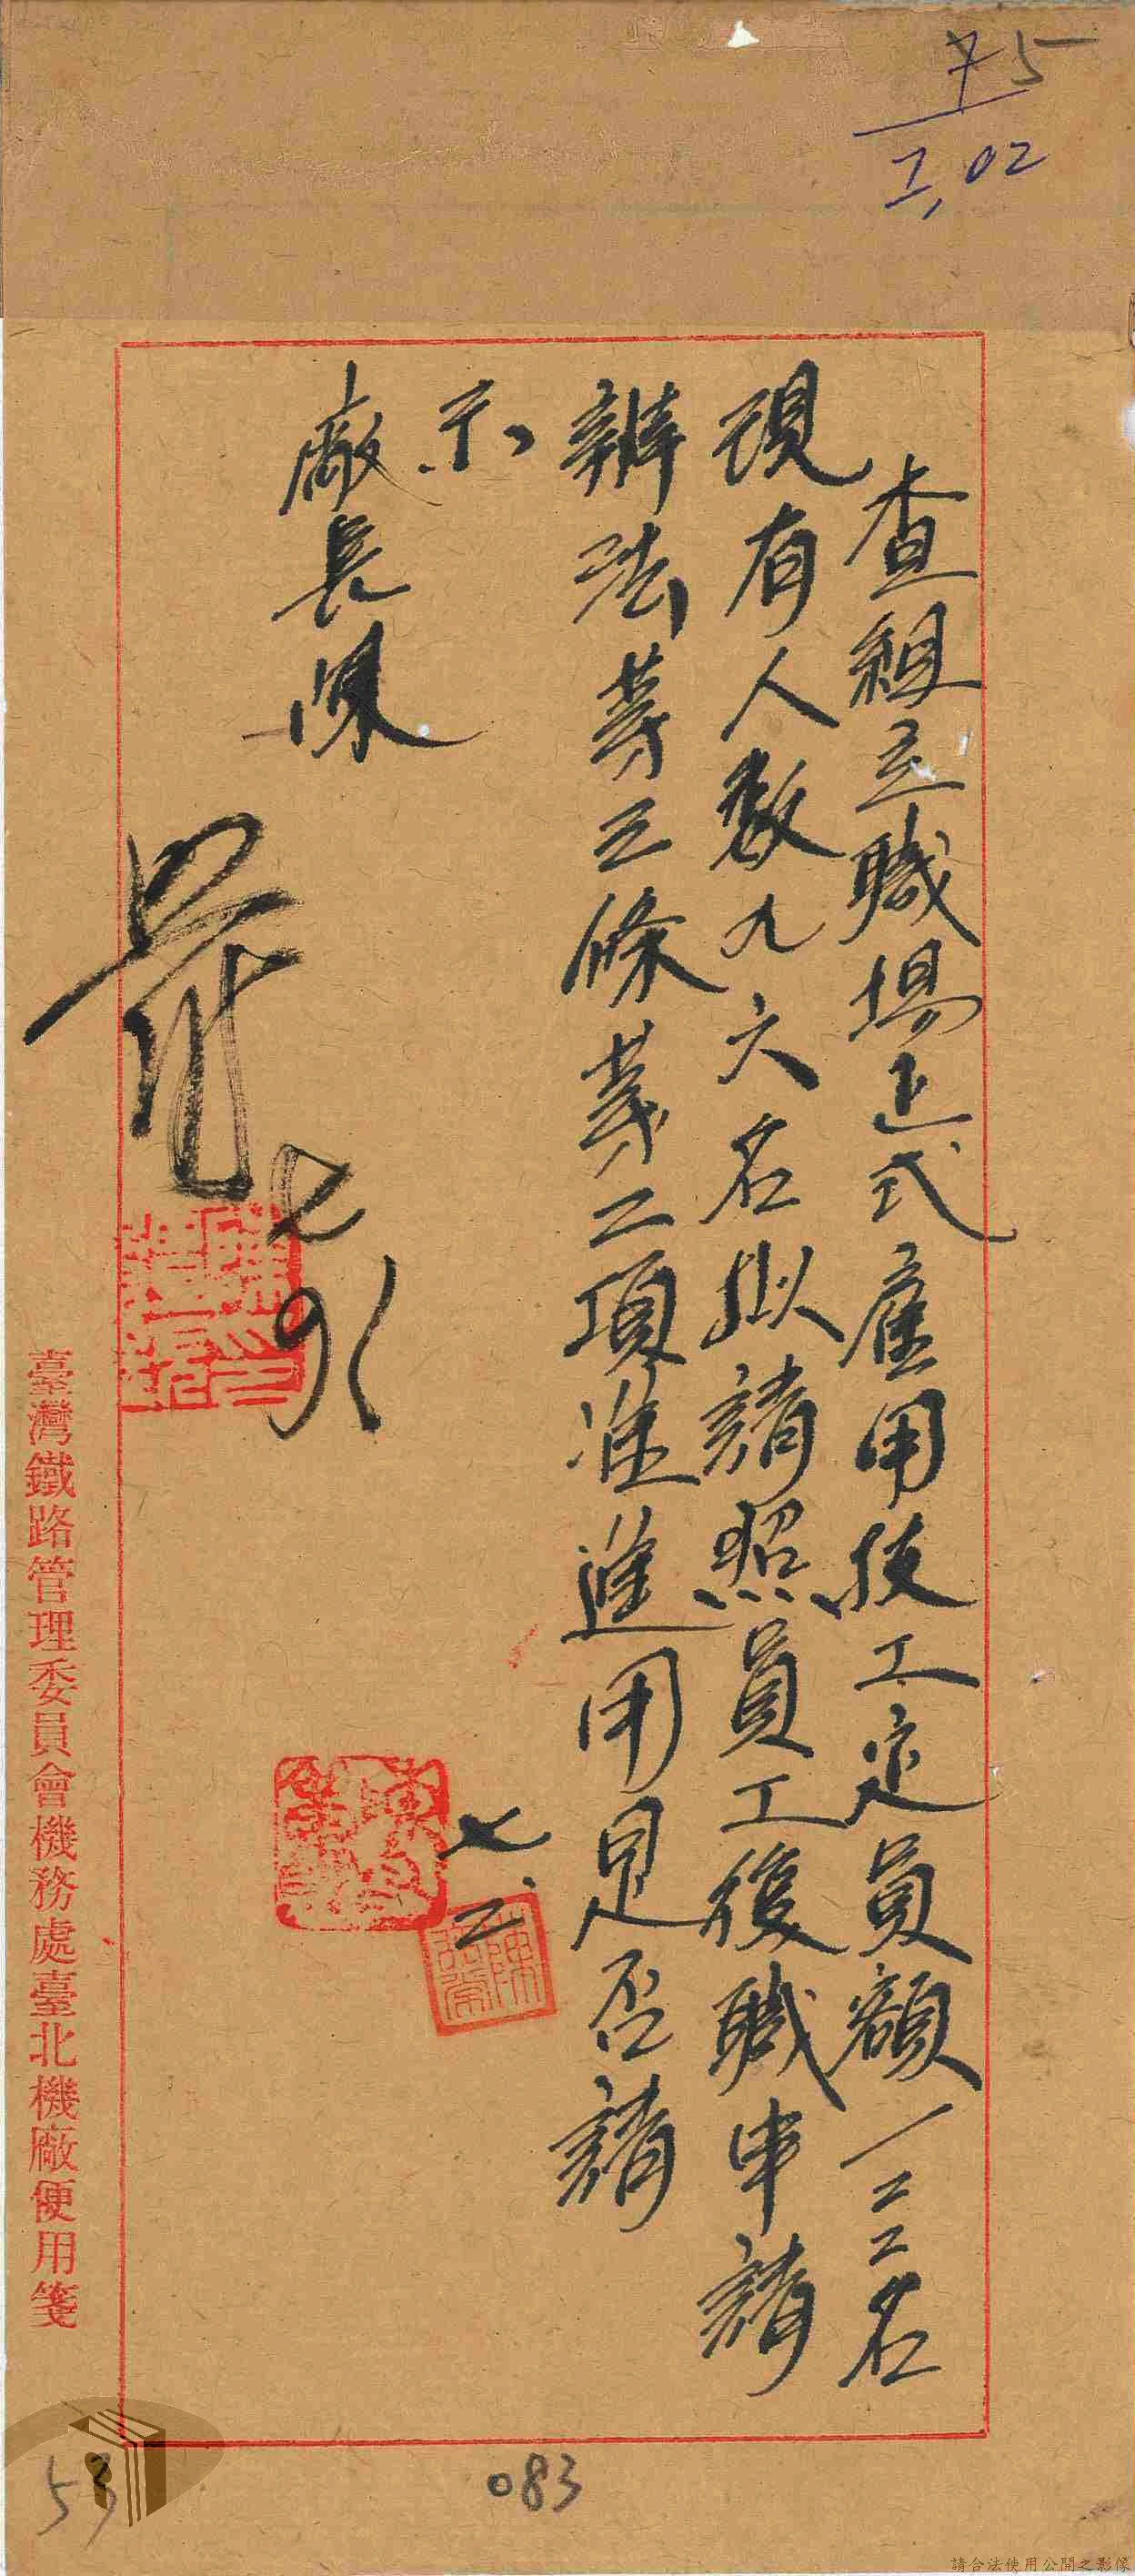 75
2,02
查組立職場正式雇用技工定員額一二二名
現有人数九六名拟請照員工復職申請
辦法第三條第二項准進用是否請
示
廠長陳
七、二
臺灣鐵路管理委員會機務處臺北機廠便用箋
53
083
請合法使用公開之影像